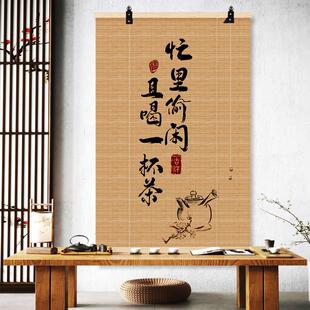 忙里偷闲
且喝一杯茶